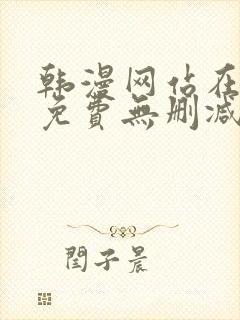 韩漫网站在
免費無删减
閆子晨